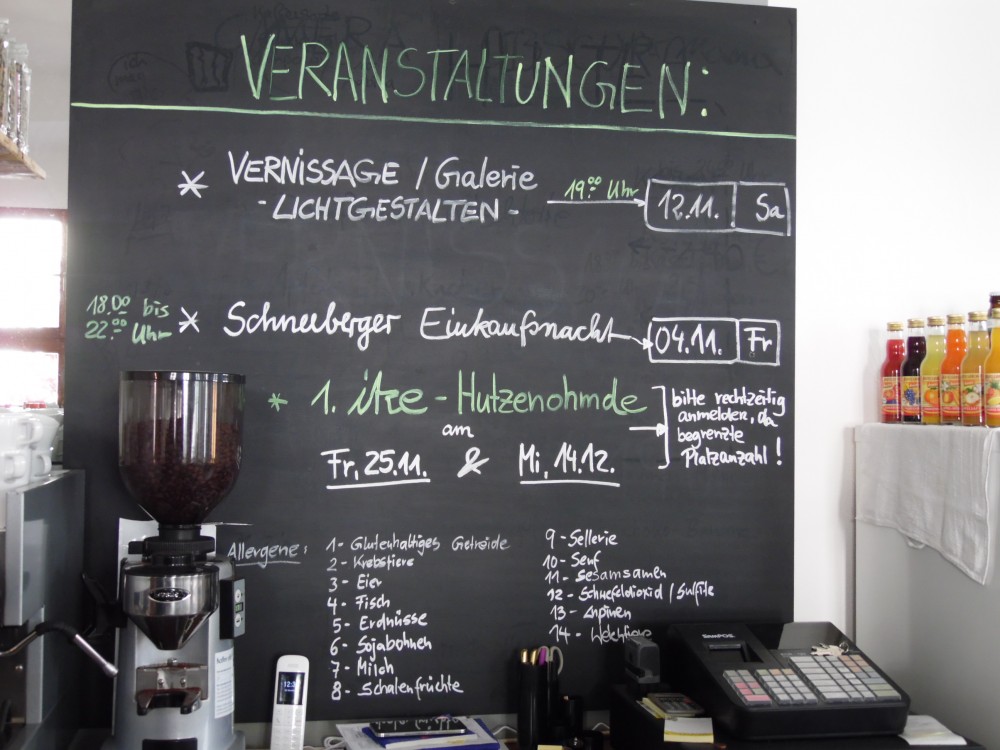 VERANSTALTUNGEN:
* VERNISSAGE / Galerie
- LICHTGESTALTEN -
19.00 Uhr
12.11. Sa
18.00 bis
22.00 Uhr
* Schneeberger Einkaufsnacht
04.11. Fr
* 1. itze - Hutzenohmde
am
Fr, 25.11. & Mi, 14.12.
bitte rechtzeitig
anmelden, da
begrenzte
Platzanzahl!
Allergene:
1 - Glutenhaltiges Getreide
2 - Krebstiere
3 - Eier
4 - Fisch
5 - Erdnüsse
6 - Sojabohnen
7 - Milch
8 - Schalenfrüchte
9 - Sellerie
10 - Senf
11 - Sesamsamen
12 - Schwefeldioxid / Sulfite
13 - Lupinen
14 - Weichtiere